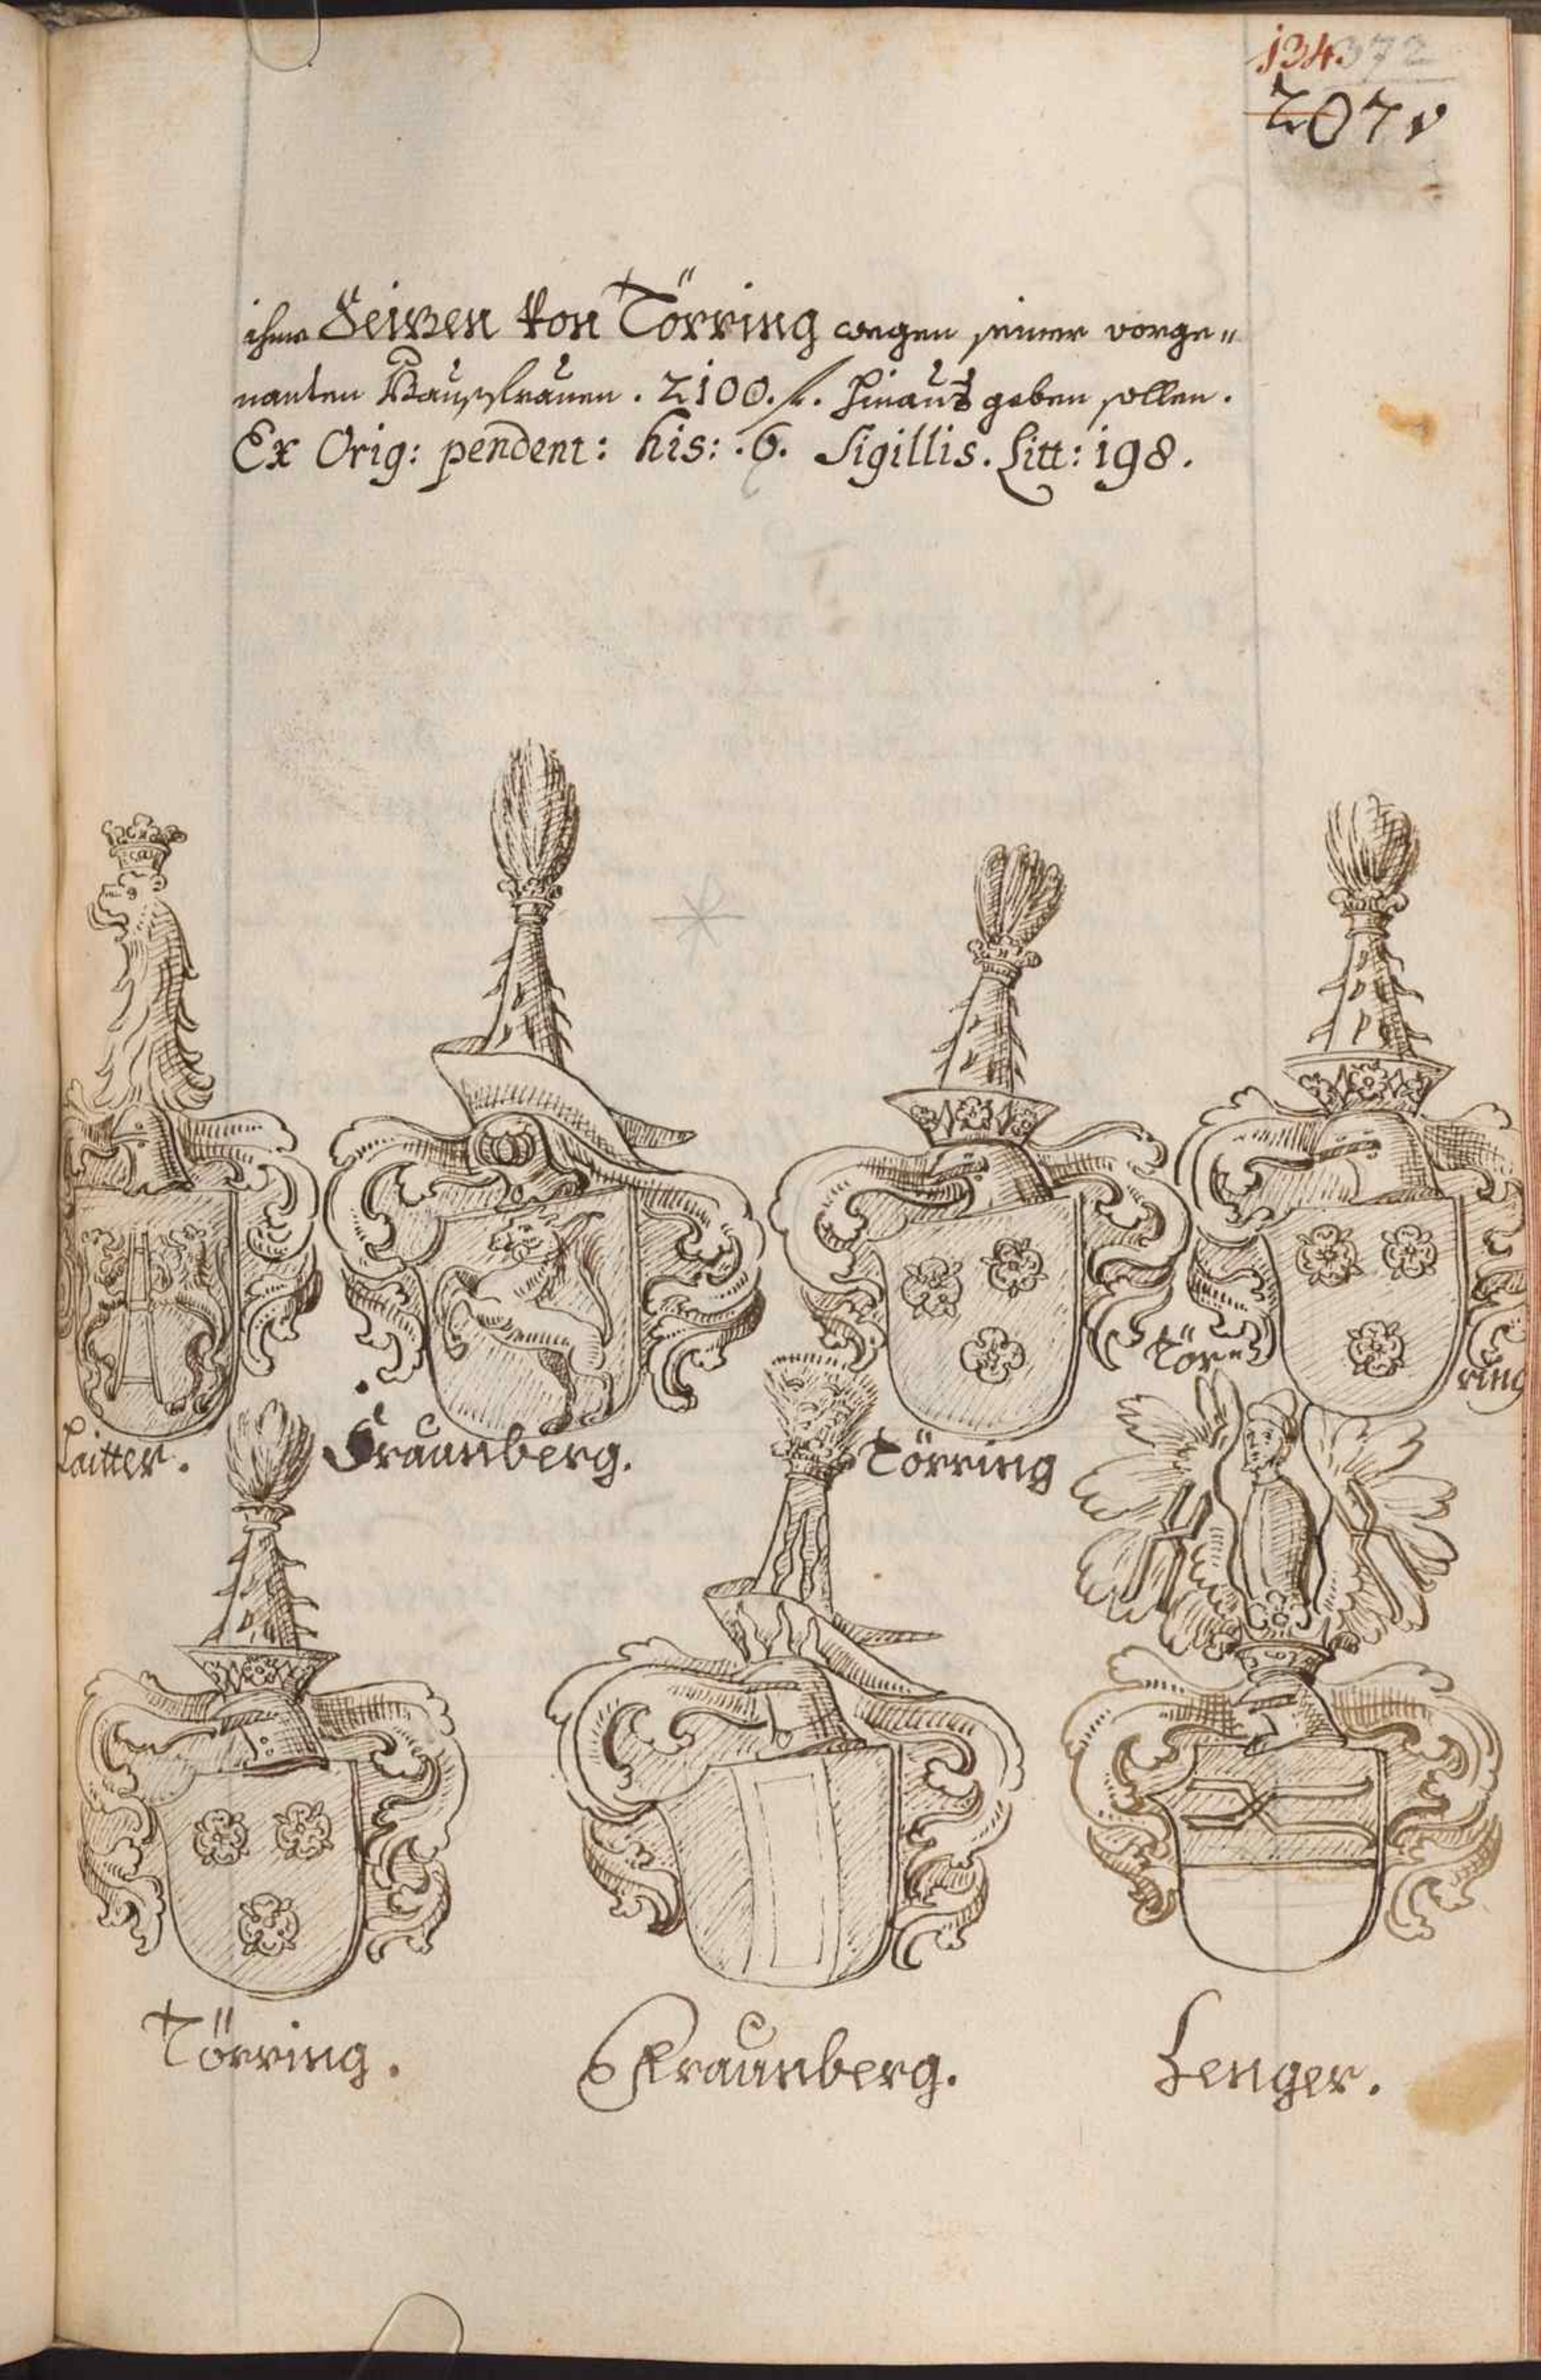 134 372
207v
ihme Seitzen von Törring wegen seiner vorge„
nanten Haussfrauen. 2100. fl. hinaus geben sollen.
Ex Orig: pendent: his: .6. Sigillis. Litt: 198.
Laitter.
Fraunberg.
Törring
Törring
Törring.
Fraunberg.
Lenger.